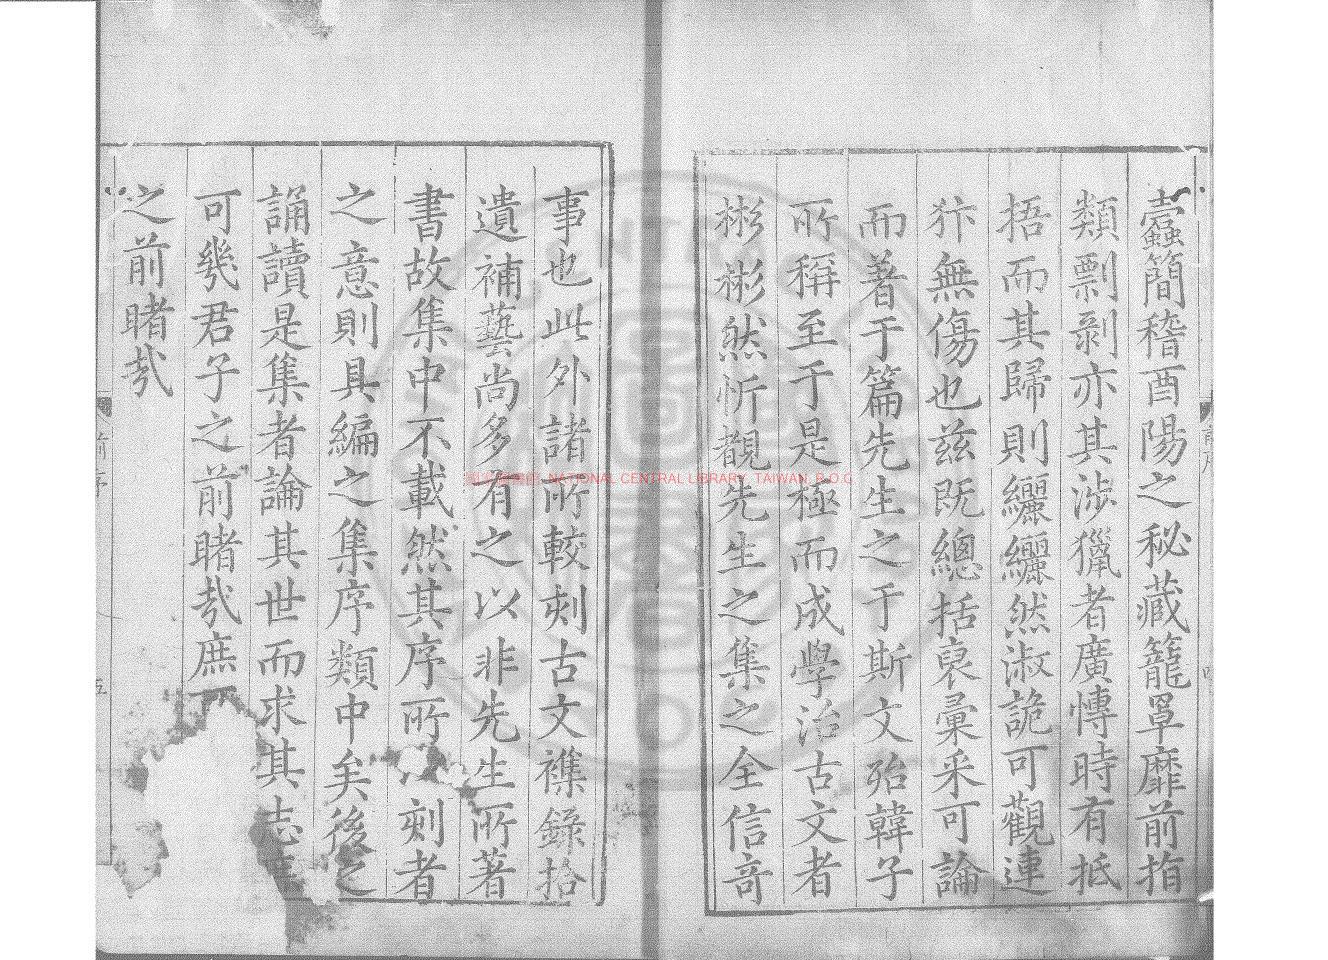 蠧簡稡酉陽之秘藏籠罩靡前指
類剽剥亦其涉獵者廣慱時有抵
捂而其歸則纚纚然淑詭可觀連
犿無傷也兹既總括裒彙釆可論
而著于篇先生之于斯文殆韓子
所稱至于是極而成學治古文者
彬彬然忻覩先生之集之全信奇
事也此外諸所較刻古文襍錄拾
遺補藝尚多有之以非先生所著
書故集中不載然其序所以刻者
之意則具編之集序類中矣後之
誦讀是集者論其世而求其志
可幾君子之前睹㦲庶
之前睹㦲
前序
五
國家圖書館 NATIONAL CENTRAL LIBRARY, TAIWAN, R.O.C